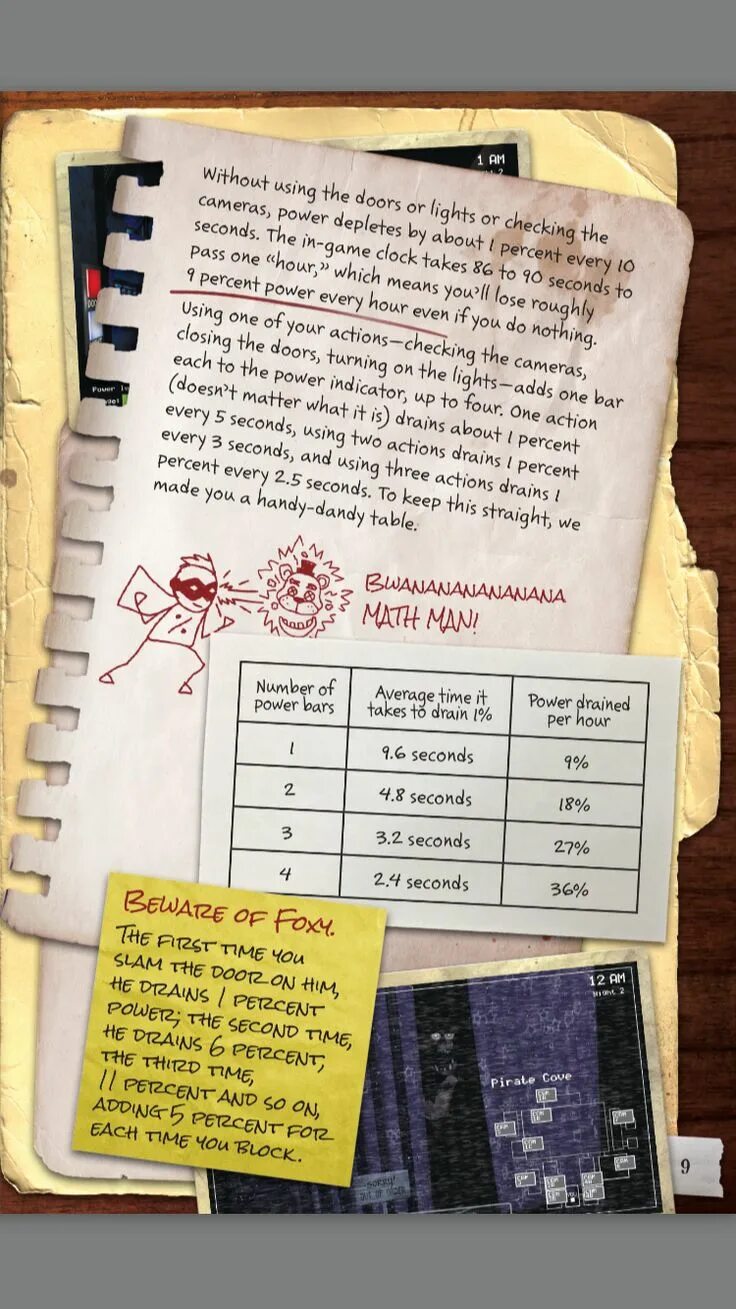 1 AM
Without using the doors or lights or checking the
cameras, power depletes by about 1 percent every 10
seconds. The in-game clock takes 86 to 90 seconds to
pass one “hour,” which means you’ll lose roughly
9 percent power every hour even if you do nothing.
Using one of your actions—checking the cameras,
closing the doors, turning on the lights—adds one bar
each to the power indicator, up to four. One action
(doesn’t matter what it is) drains about 1 percent
every 5 seconds, using two actions drains 1 percent
every 3 seconds, and using three actions drains 1
percent every 2.5 seconds. To keep this straight, we
made you a handy-dandy table.
BWANANANANANANA
MATH MAN!
Number of power bars Average time it takes to drain 1% Power drained per hour
1 9.6 seconds 9%
2 4.8 seconds 18%
3 3.2 seconds 27%
4 2.4 seconds 36%
BEWARE OF FOXY.
THE FIRST TIME YOU
SLAM THE DOOR ON HIM,
HE DRAINS 1 PERCENT
POWER; THE SECOND TIME,
HE DRAINS 6 PERCENT,
THE THIRD TIME,
11 PERCENT AND SO ON,
ADDING 5 PERCENT FOR
EACH TIME YOU BLOCK.
12 AM
Night 2
Pirate Cove
SORRY!
OUT OF ORDER
9